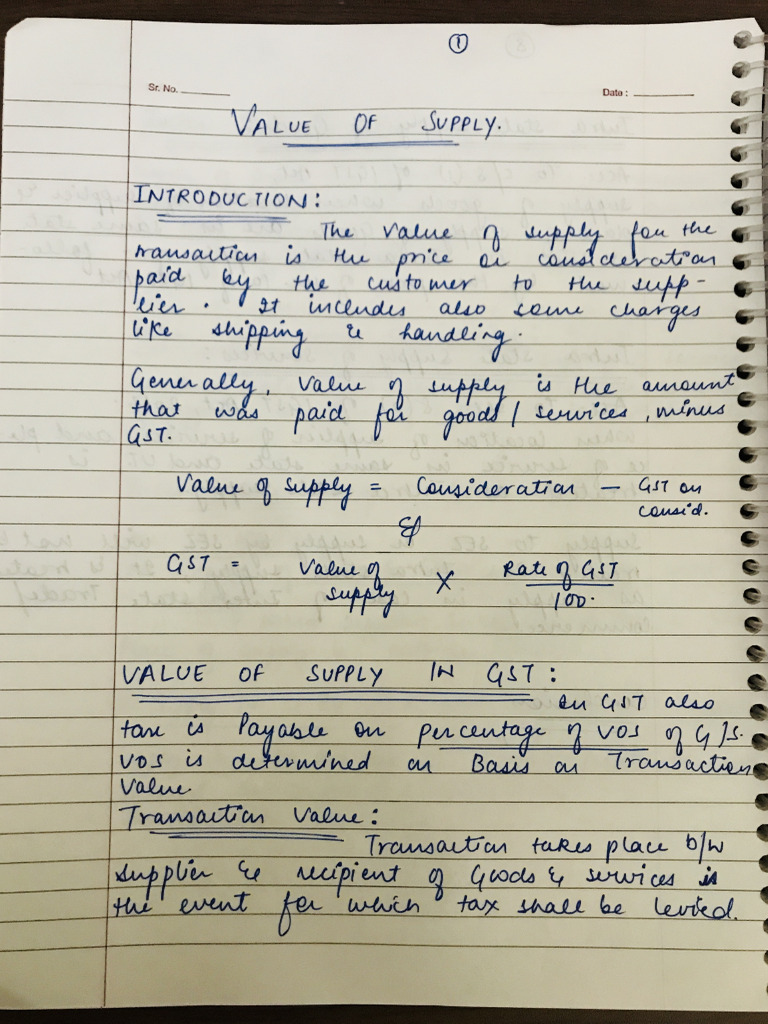 ①
Sr. No.
Date :
VALUE OF SUPPLY.
INTRODUCTION :
The value of supply for the
transaction is the price or consideration
paid by the customer to the supp-
lier. It includes also some charges
like shipping & handling.
Generally, value of supply is the amount
that was paid for goods / services, minus
GST.
Value of supply = Consideration — GST on
consid.
&
GST = Value of supply × Rate of GST
100.
VALUE OF SUPPLY IN GST :
In GST also
tax is Payable on percentage of VOS of G/S.
VOS is determined on Basis on Transaction
Value.
Transaction Value :
Transaction takes place b/w
supplier & recipient of Goods & services is
the event for which tax shall be levied.